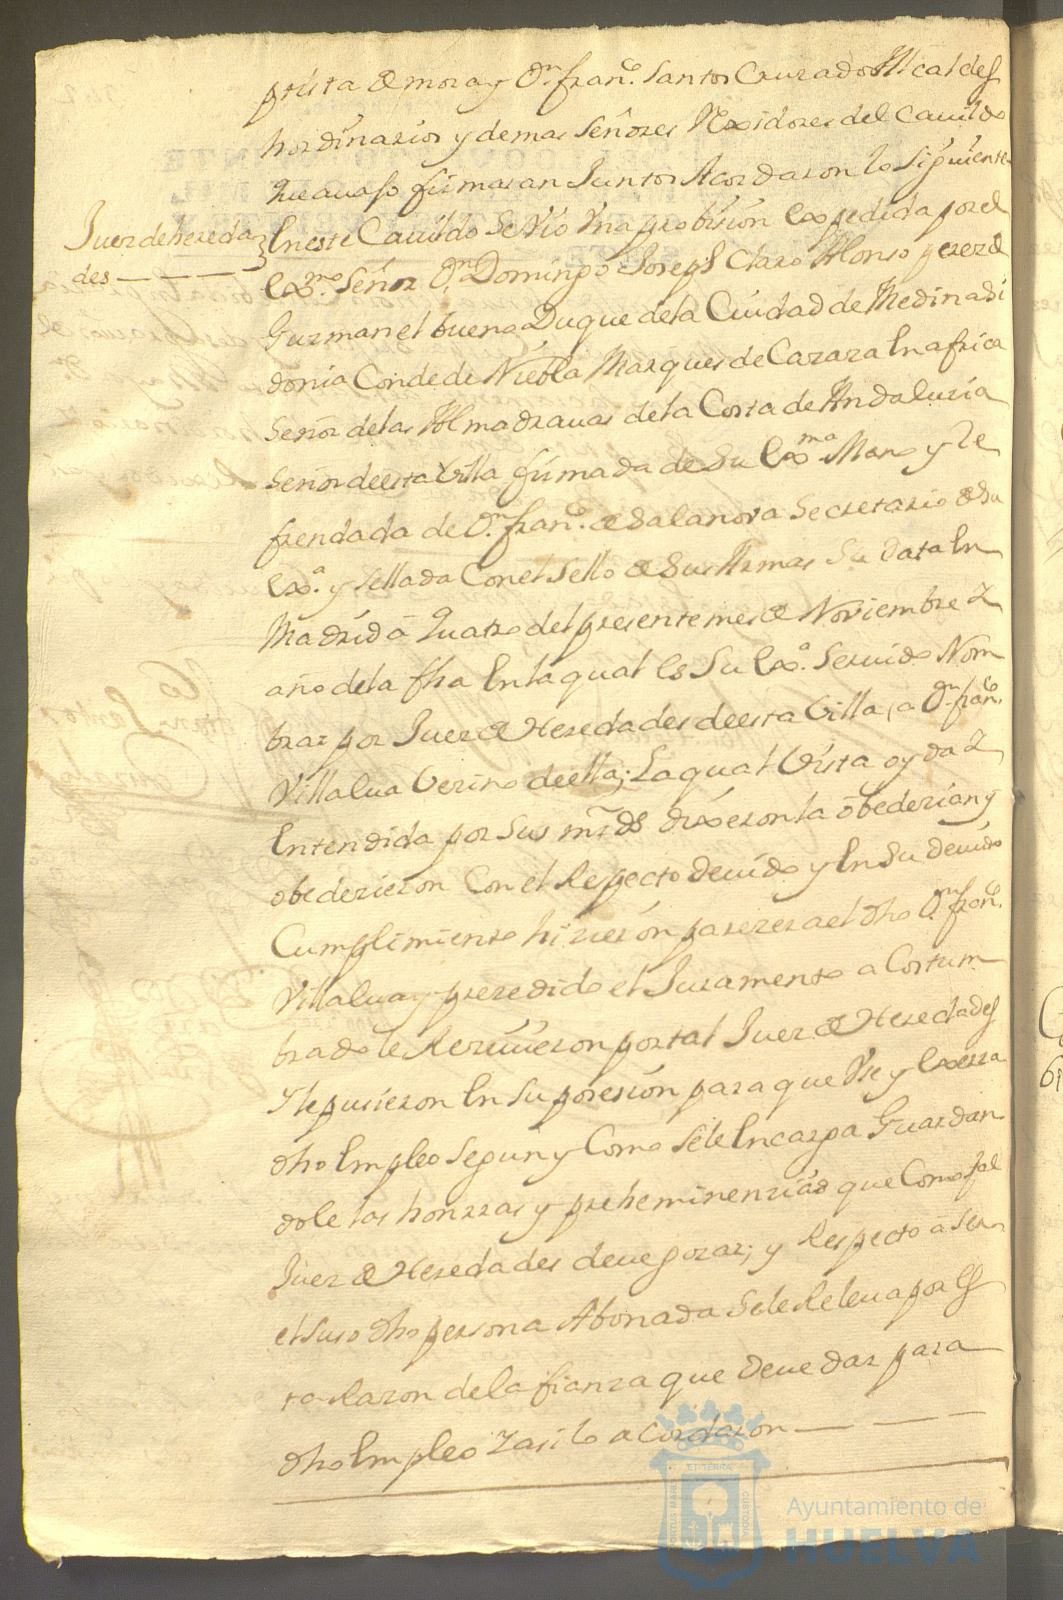 ptista de mora y Dn. franco. Santos Cruzado Alcaldes
hordinarios y demas Señores Rexidores del Cavildo
que avajo firmaran Juntos Acordaron lo Siguiente
Juez de hereda
des
En este Cavildo Se Vio Vna probision Expedida por el
Exmo. Señor Dn. Domingo Joseph Claro Alonso perez de
Guzman el bueno Duque de la Ciudad de Medina Si
donia Conde de Niebla Marques de Cazaza En africa
Señor de las Almadravas de la Costa de Andaluzia
Señor de esta Villa firmada de Su Exma. Mano y Re
frendada de Dn. franco. de Salanova Secretario de Su
Exa. y Sellada Con el Sello de Sus Armas Su data En
Madrid a quatro del presente mes de Noviembre y
año de la fha En la qual Es Su Exa. Servido Nom
brar por Juez de Heredades de esta Villa a Dn. franco.
Villalva Vezino de ella; La qual Vista oyda y
Entendida por Sus mrds dixeron la obedezian y
obedezieron Con el Respecto Devido y En Su Devido
Cumplimiento hizieron parezer a el dho Dn. franco.
Villalva y prezedido el Juramento a Costum
brado le Rezivieron por tal Juez de Heredades
Y le pusieron En Su posesion para que Vse y Exerza
dho Empleo Segun y Como Se le Encarga Guardan
dole las honrras y preheminenzias que Como tal
Juez de Heredades deve gozar; y Respecto a Ser
el Suso dho persona Abonada Se le Releva por Es
ta Razon de la fianza que Deve dar para
dho Empleo Y asi lo a Cordaron
Ayuntamiento de
HUELVA